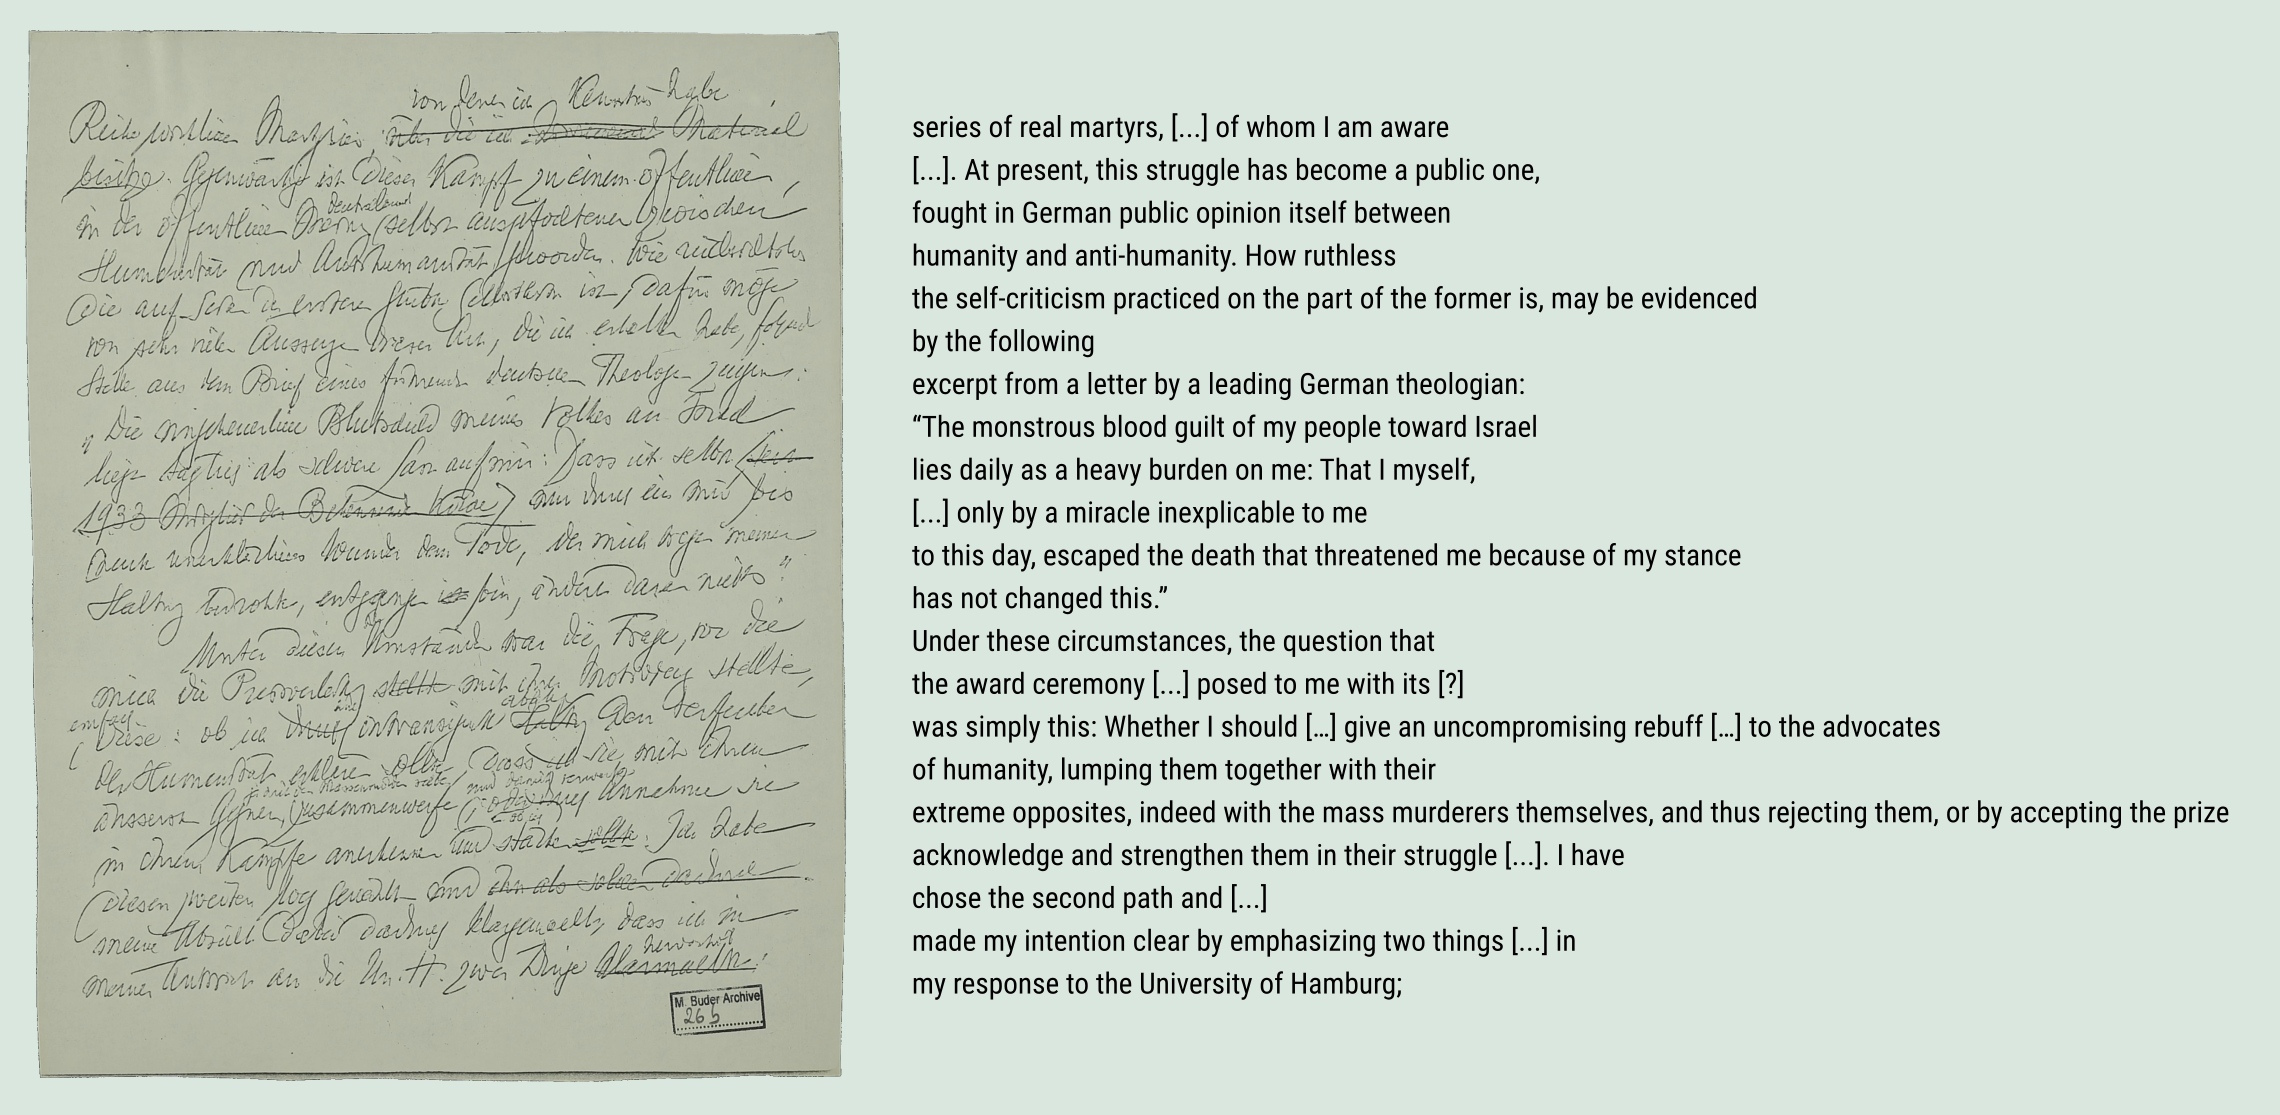 von denen ich Kenntnis habe
Reihe wirklicher Martyrier, über die ich Material
besitze. Gegenwärtig ist dieser Kampf zu einem öffentlichen,
Deutschland
in der öffentlichen Meinung selbst ausgefochtenen zwischen
Humanität und Antihumanität geworden. Wie rücksichtslos
die auf Seiten der ersteren geübte Selbstkritik ist, dafür möge
von sehr vielen Äusserungen dieser Art, die ich erhalten habe, folgende
Stelle aus dem Brief eines führenden deutschen Theologen zeugen:
„Die ungeheuerliche Blutschuld meines Volkes an Israel
liegt täglich als schwere Last auf mir: Dass ich selbst (seit
1933 Mitglied der Bekennenden Kirche) nur durch ein mir bis
heute unerklärliches Wunder dem Tode, der mich wegen meiner
Haltung bedrohte, entgangen ist bin, ändert daran nichts“
Unter diesen Umständen war die Frage, vor die
mich die Preisverleihung stellte mit ihrer Motivierung stellte,
einfach
diese: ob ich durch intransigente den Verfechtern
der Humanität erteilen sollte, dass ich sie mit ihren
ja mit den Massenmördern selbst
und damit verwerfe
äussersten Gegnern, zusammenwerfe, oder durch Annahme sie
in ihrem Kampfe anerkennen und stärken sollte. Ich habe
diesen zweiten Weg gewählt und ihn als solchen dadurch
meine Absicht dabei dadurch klargemacht, dass ich in
hervorhob
meiner Antwort an die Un. H. zwei Dinge klarmachte:
M. Buder Archive
26 b
series of real martyrs, [...] of whom I am aware
[...]. At present, this struggle has become a public one,
fought in German public opinion itself between
humanity and anti-humanity. How ruthless
the self-criticism practiced on the part of the former is, may be evidenced
by the following
excerpt from a letter by a leading German theologian:
“The monstrous blood guilt of my people toward Israel
lies daily as a heavy burden on me: That I myself,
[...] only by a miracle inexplicable to me
to this day, escaped the death that threatened me because of my stance
has not changed this.”
Under these circumstances, the question that
the award ceremony [...] posed to me with its [?]
was simply this: Whether I should [...] give an uncompromising rebuff [...] to the advocates
of humanity, lumping them together with their
extreme opposites, indeed with the mass murderers themselves, and thus rejecting them, or by accepting the prize
acknowledge and strengthen them in their struggle [...]. I have
chose the second path and [...]
made my intention clear by emphasizing two things [...] in
my response to the University of Hamburg;